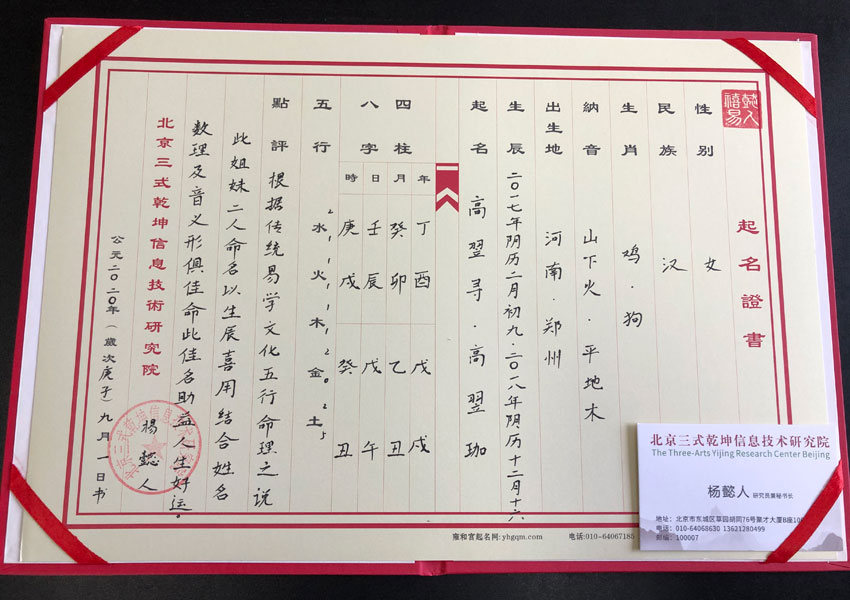 起名證書
性别 女
民族 汉
生肖 鸡·狗
納音 山下火·平地木
出生地 河南·郑州
生辰 二〇一七年阴历二月初九·二〇一八年阴历十二月十六
起名 高翌寻·高翌珈
四柱
八字
年 丁酉 戊戌
月 癸卯 乙丑
日 壬辰 戊午
時 庚戌 癸丑
五行 水 火 木 金 土
點評 根据传统易学文化五行命理之说
此姐妹二人命名以生辰喜用结合姓名
数理及音义形俱佳命此佳名助益人生好运。
北京三式乾坤信息技術研究院
杨懿人
公元二〇二〇年(歲次庚子)九月一日书
雍和宫起名网:yhgqm.com
电话:010-64067185
北京三式乾坤信息技术研究院
The Three-Arts Yijing Research Center Beijing
杨懿人 研究员兼秘书长
地址:北京市东城区草园胡同76号聚才大厦B座10
电话:010-64068630 13621280499
邮编:100007